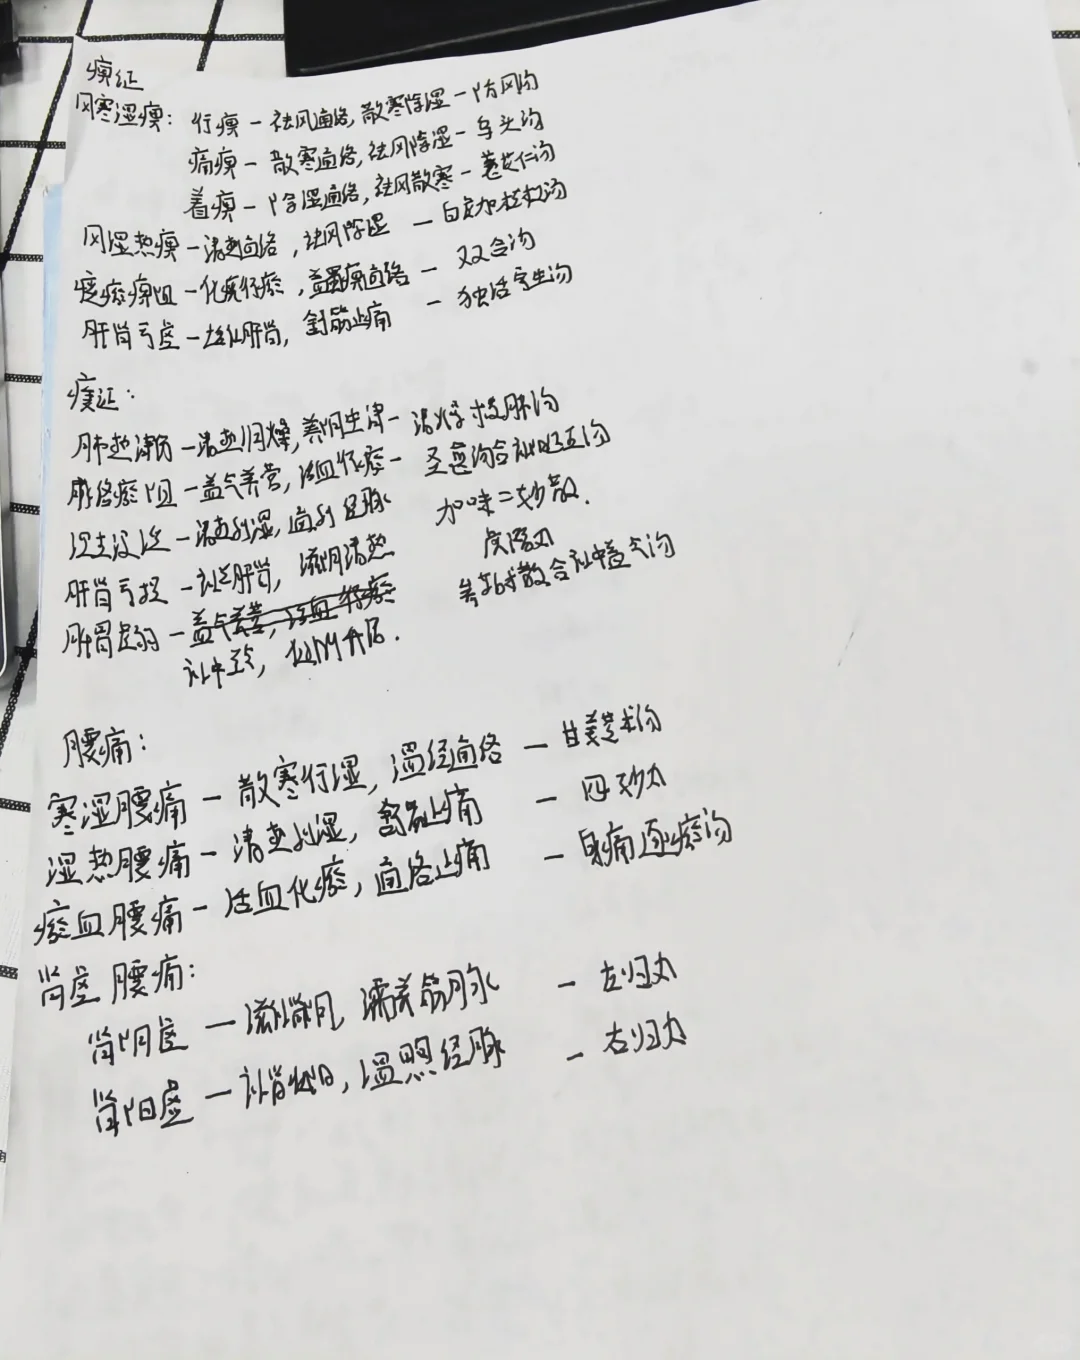 痹证
风寒湿痹：行痹－祛风通络，散寒除湿－防风汤
痛痹－散寒通络，祛风除湿－乌头汤
着痹－除湿通络，祛风散寒－薏苡仁汤
风湿热痹－清热通络，祛风除湿－白虎加桂枝汤
痰瘀痹阻－化痰行瘀，蠲痹通络－双合汤
肝肾亏虚－培补肝肾，舒筋止痛－独活寄生汤
痿证：
肺热津伤－清热润燥，养阴生津－清燥救肺汤
脉络瘀阻－益气养营，活血行瘀－圣愈汤合补阳还五汤
湿热浸淫－清热利湿，通利经脉 加味二妙散．
肝肾亏损－补益肝肾，滋阴清热 虎潜丸
脾胃虚弱－益气养营，活血行瘀 参苓白术散合补中益气汤
补中益气，健脾升清．
腰痛：
寒湿腰痛－散寒行湿，温经通络－甘姜苓术汤
湿热腰痛－清热利湿，舒筋止痛－四妙丸
瘀血腰痛－活血化瘀，通络止痛－身痛逐瘀汤
肾虚腰痛：
肾阴虚－滋补肾阴，濡养筋脉－左归丸
肾阳虚－补肾壮阳，温煦经脉－右归丸